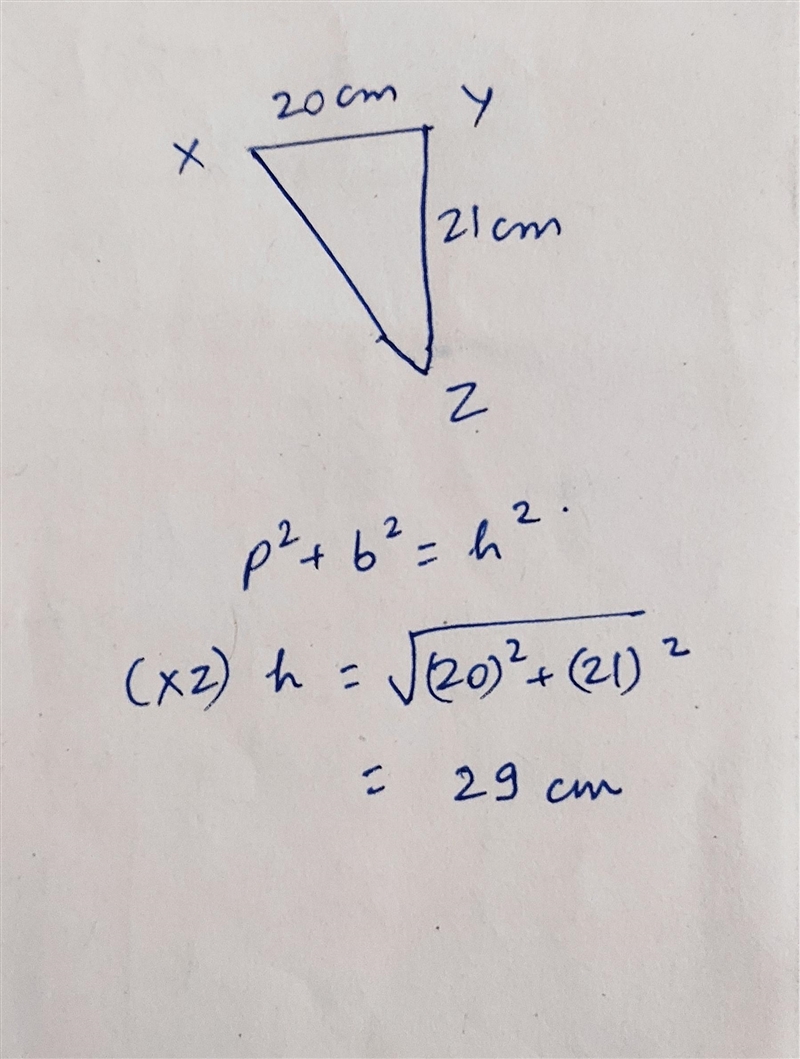 20cm Y
X
21cm
Z
p² + b² = h².
(XZ) h = √(20)² + (21)²
= 29 cm